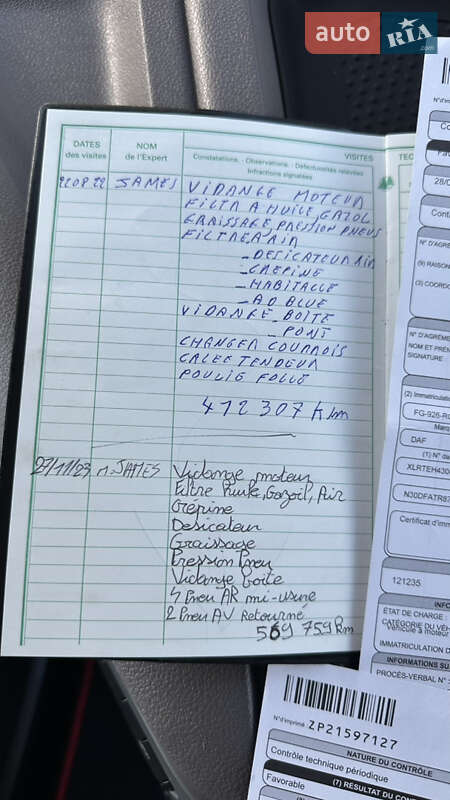 auto RIA .com
DATES des visites
NOM de l'Expert
VISITES
Constatations. - Observations. - Défectuosités relevées
Infractions signalées
TEC
22.08.22 JAMES VIDANGE MOTEUR
FILTR A HUILE, GAZOL
GRAISSAGE, PRESSION PNEUS
FILTRE A AIR
- DESICATEUR AIR
- CREPINE
- HABITACLE
- AD BLUE
VIDANGE BOITE
- PONT
CHANGER COURROIS
GALEE TENDEUR
POULIE FOLLE
412 307 Km
27/11/23 M. JAMES Vidange moteur
Filtre Huile, Gazoil, Air
Crépine
Desicateur
Graissage
Pression Pneu
Vidange boite
4 Pneu AR mi-usure
2 Pneu AV Retourné
569 759 Km
N° d'imprimé ZP21597127
NATURE DU CONTRÔLE
Contrôle technique périodique
(7) RÉSULTAT DU CON
Favorable
N° D'AGRÉ
(9) RAISON
(3) COORDO
N° D'AGRÉME
NOM ET PRÉN
SIGNATURE
(2) Immatriculation
FG-926-R
Marqu
DAF
(1) N° da
XLRTEH430
N30DFATR8
Certificat d'imm
121235
INFO
ÉTAT DE CHARGE :
CATÉGORIE DU VÉH
Véhicule à moteur
IMMATRICULATION D
INFORMATIONS SU
PROCÈS-VERBAL N° :